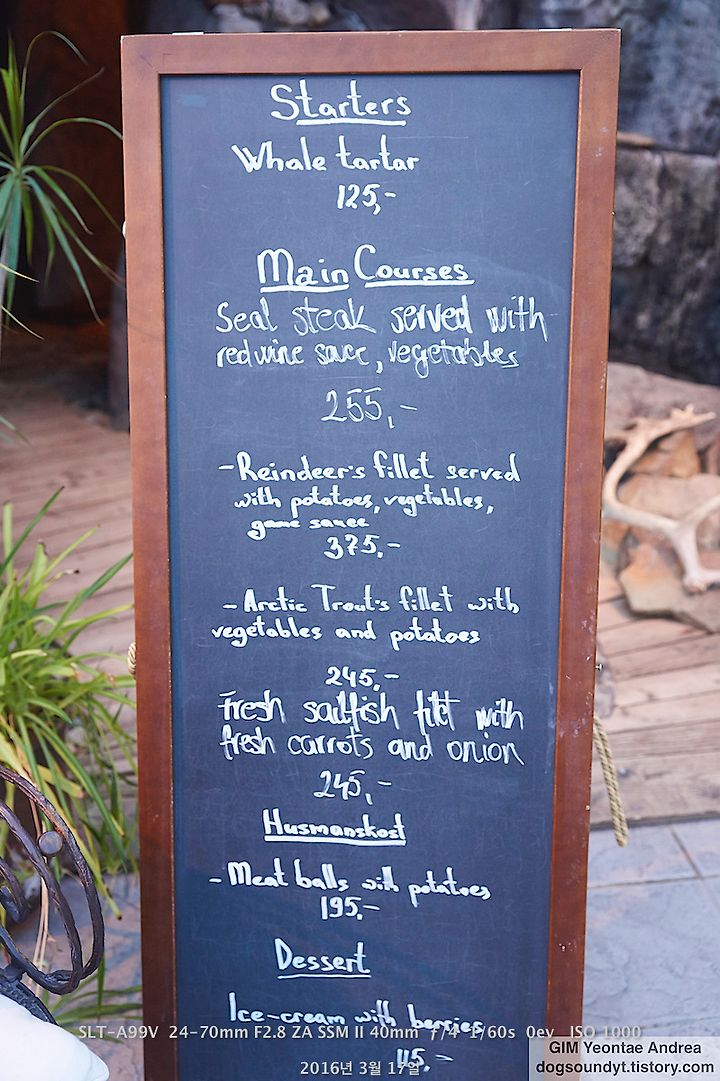 Starters
Whale tartar
125,-
Main Courses
Seal steak served with
redwine sauce, vegetables
255,-
-Reindeer's fillet served
with potatoes, vegetables,
game sauce
375,-
-Arctic Trout's fillet with
vegetables and potatoes
245,-
Fresh sailfish filet with
fresh carrots and onion
245,-
Husmanskost
-Meat balls with potatoes
195,-
Dessert
Ice-cream with berries
115,-
SLT-A99V 24-70mm F2.8 ZA SSM II 40mm f/4 1/60s 0ev ISO 1000
2016년 3월 17일
GIM Yeontae Andrea
dogsoundyt.tistory.com